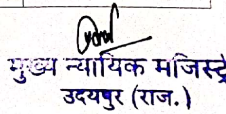 मुख्य न्यायिक मजिस्ट्रे
उदयपुर (राज.)